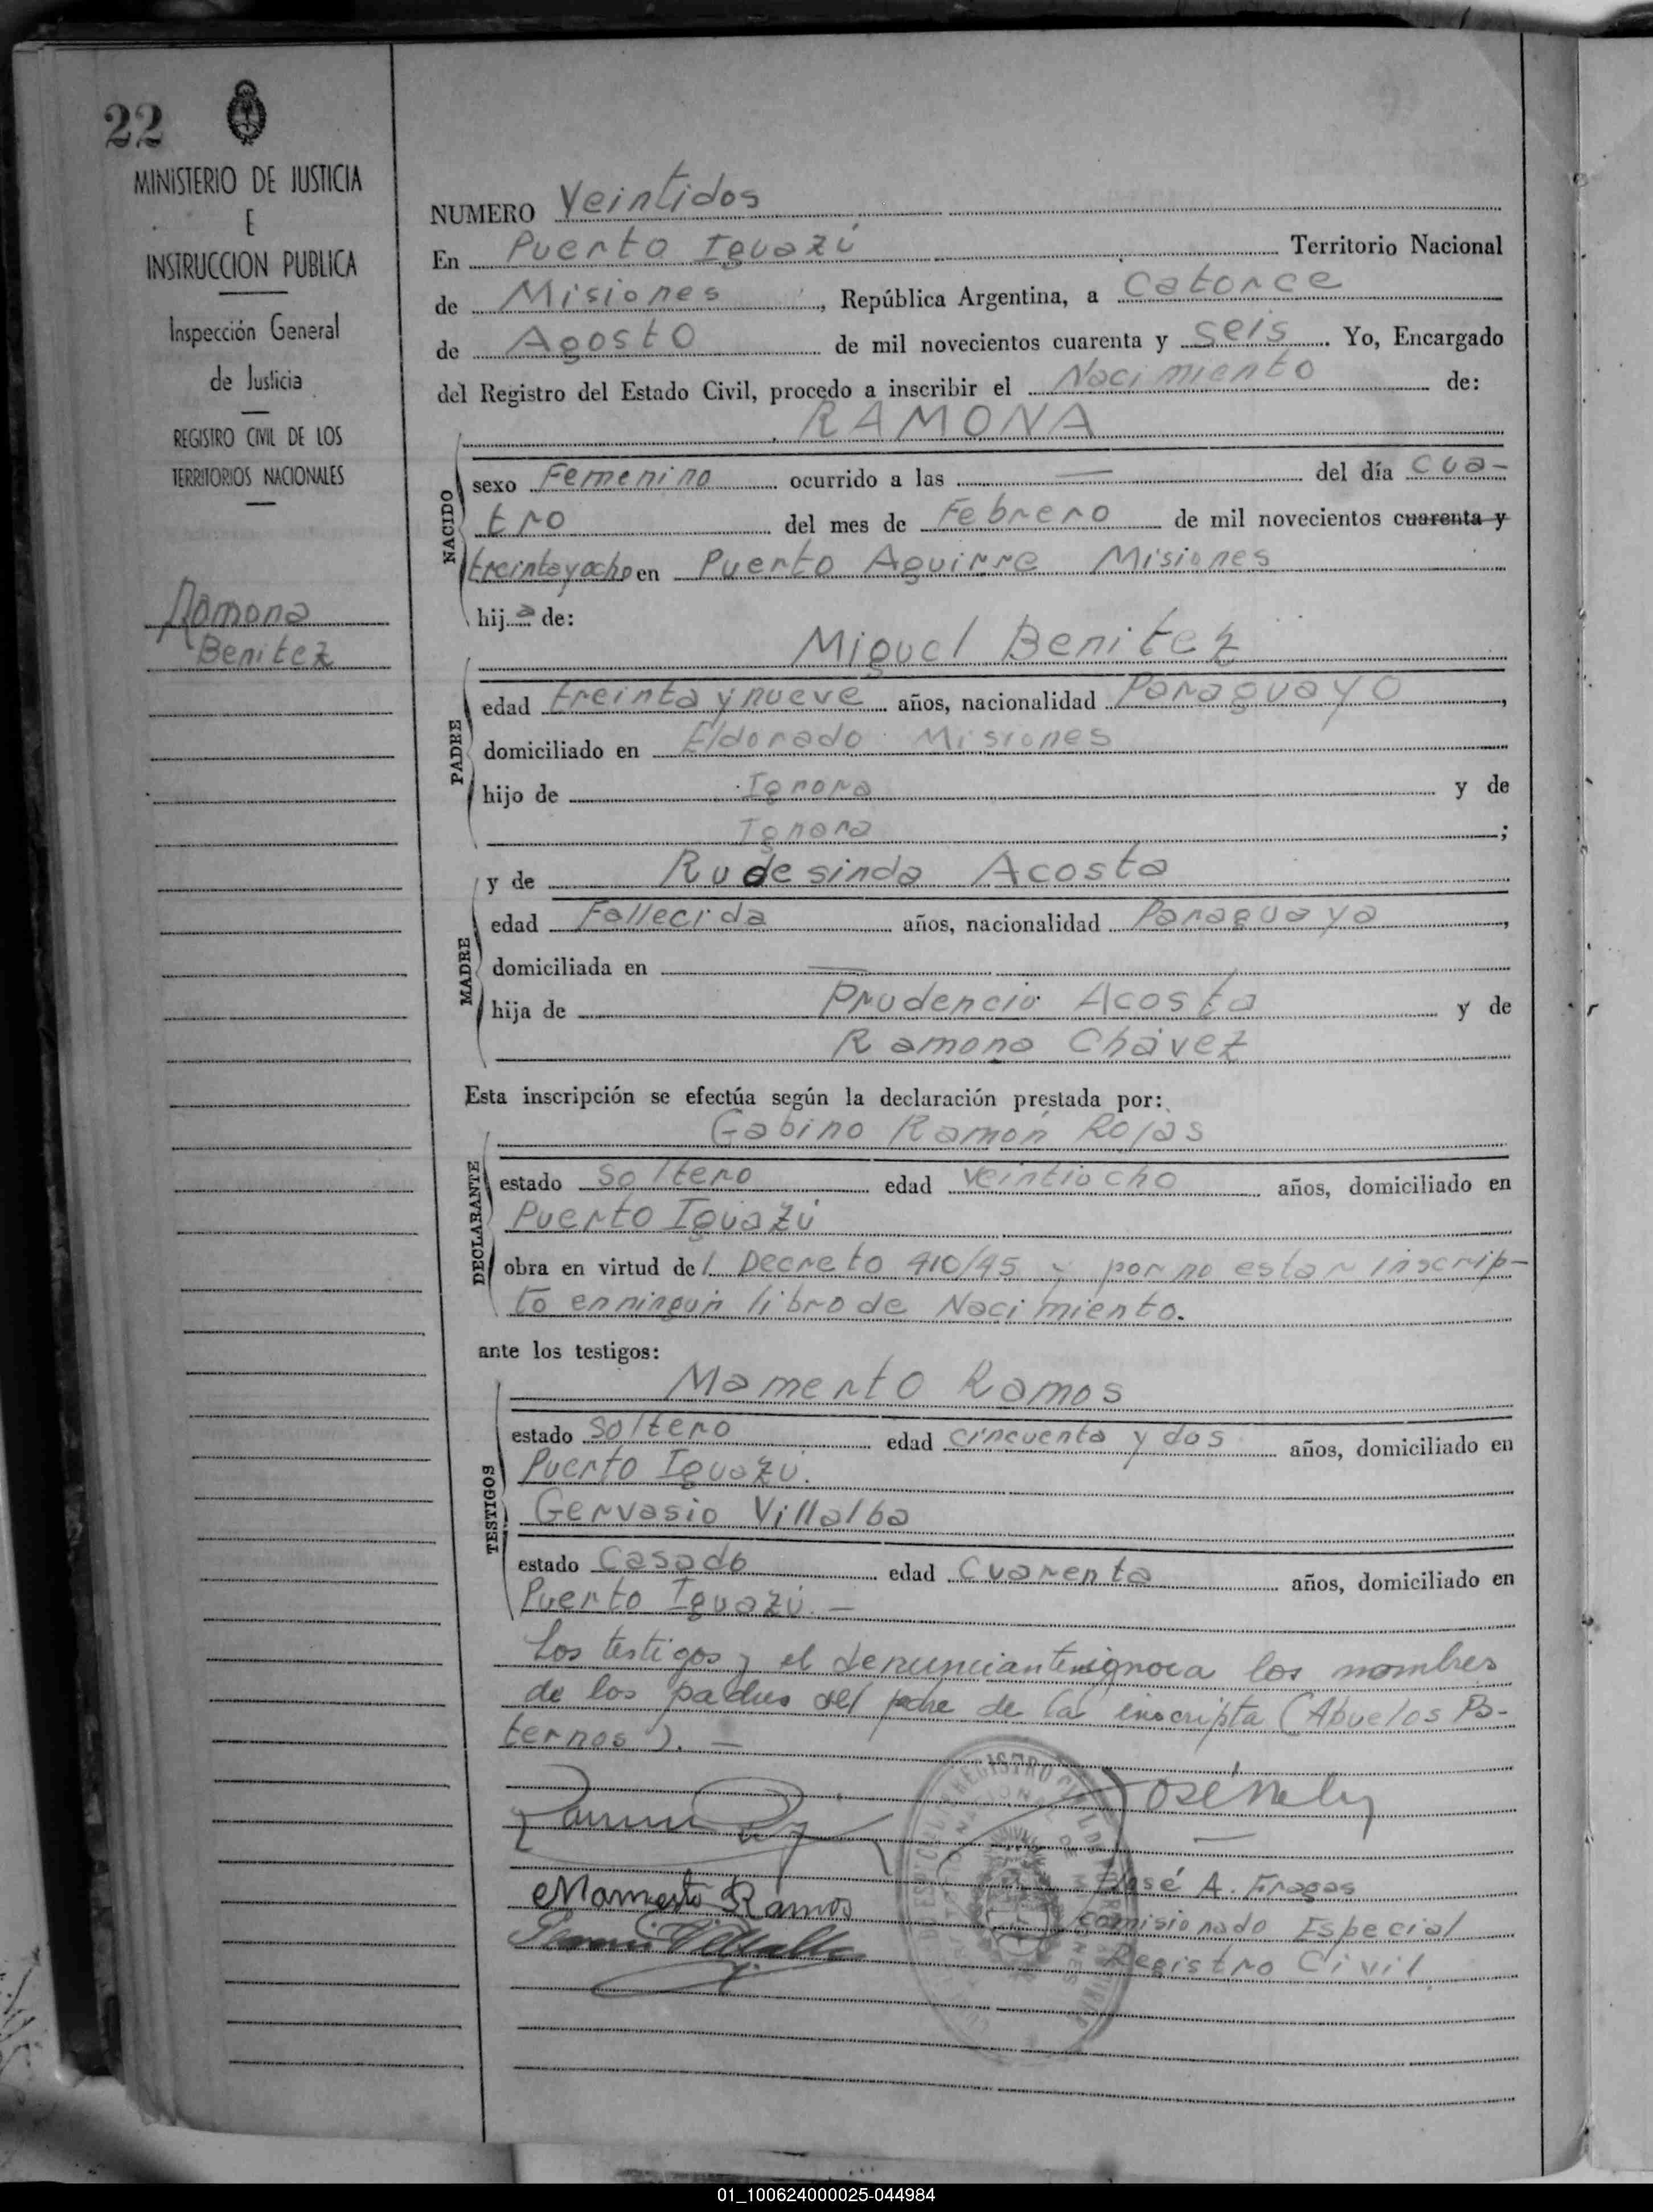 22
MINISTERIO DE JUSTICIA
E
INSTRUCCION PUBLICA
Inspección General
de Justicia
REGISTRO CIVIL DE LOS
TERRITORIOS NACIONALES
Ramona
Benitez
NUMERO Veintidos
En Puerto Iguazú Territorio Nacional
de Misiones, República Argentina, a Catorce
de Agosto de mil novecientos cuarenta y seis. Yo, Encargado
del Registro del Estado Civil, procedo a inscribir el Nacimiento de:
RAMONA
NACIDO
sexo Femenino ocurrido a las — del día cua-
tro del mes de Febrero de mil novecientos cuarenta y
treinta y ocho en Puerto Aguirre Misiones
hija de:
Miguel Benitez
PADRE
edad treinta y nueve años, nacionalidad Paraguayo,
domiciliado en Eldorado Misiones
hijo de Ignora y de
Ignora;
y de Rudesinda Acosta
MADRE
edad Fallecida años, nacionalidad Paraguaya,
domiciliada en —
hija de Prudencio Acosta y de
Ramona Chávez
Esta inscripción se efectúa según la declaración prestada por:
Gabino Ramón Rojas
DECLARANTE
estado Soltero edad veintiocho años, domiciliado en
Puerto Iguazú
obra en virtud del Decreto 410/45 y por no estar inscrip-
to en ningún libro de Nacimiento.
ante los testigos:
Mamerto Ramos
TESTIGOS
estado Soltero edad cincuenta y dos años, domiciliado en
Puerto Iguazú.
Gervasio Villalba
estado Casado edad Cuarenta años, domiciliado en
Puerto Iguazú. —
Los testigos y el denunciante ignora los nombres
de los padres del padre de la inscripta (Abuelos Pa-
ternos). —
Mamerto Ramos
José A. Fragas
Comisionado Especial
Registro Civil
01_100624000025-044984